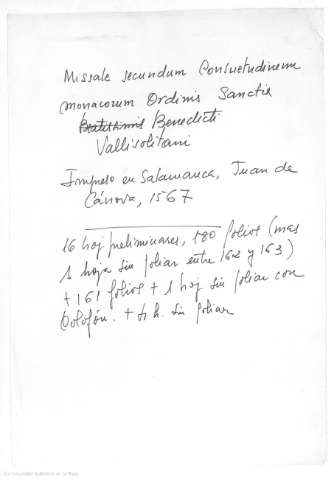 Missale secundum Consuetudinem
monacorum Ordinis Sancti
Benedicti
Vallisolitani
Impreso en Salamanca, Juan de
Cánova, 1567
16 hoj preliminares, 180 folios (mas
1 hoja sin foliar entre 162 y 163)
+ 161 folios + 1 hoj sin foliar con
Colofón. + h. sin foliar